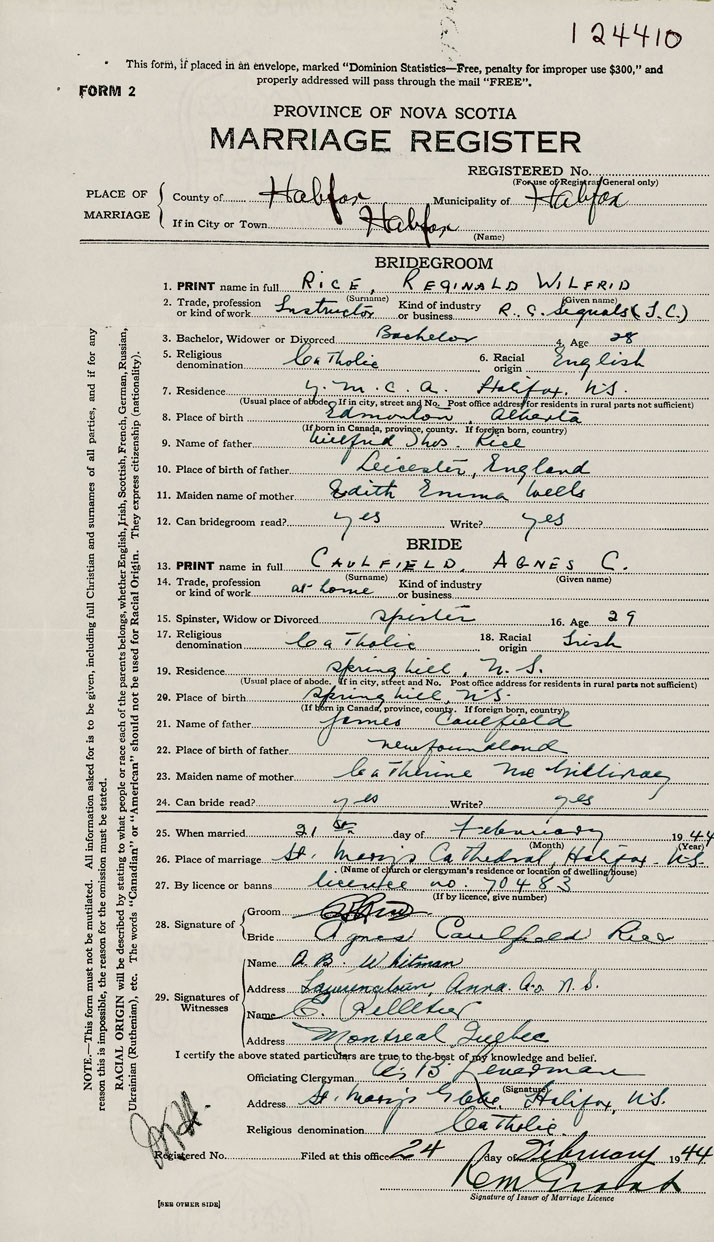 124410
This form, if placed in an envelope, marked "Dominion Statistics—Free, penalty for improper use $300," and
properly addressed will pass through the mail "FREE".
FORM 2
PROVINCE OF NOVA SCOTIA
MARRIAGE REGISTER
REGISTERED No.
(For use of Registrar General only)
PLACE OF MARRIAGE
County of Halifax Municipality of Halifax
If in City or Town Halifax
(Name)
BRIDEGROOM
1. PRINT name in full RICE, REGINALD WILFRID
(Surname) (Given name)
2. Trade, profession or kind of work Instructor Kind of industry or business R. C. Signals (T.C.)
3. Bachelor, Widower or Divorced Bachelor 4. Age 28
5. Religious denomination Catholic 6. Racial origin English
7. Residence Y. M. C. A. Halifax, N.S.
(Usual place of abode. If in city, street and No. Post office address for residents in rural parts not sufficient)
8. Place of birth Edmonton, Alberta
(If born in Canada, province, county. If foreign born, country)
9. Name of father Wilfrid Thos. Rice
10. Place of birth of father Leicester, England
11. Maiden name of mother Edith Emma Wells
12. Can bridegroom read? yes Write? yes
BRIDE
13. PRINT name in full CAULFIELD, AGNES C.
(Surname) (Given name)
14. Trade, profession or kind of work at home Kind of industry or business
15. Spinster, Widow or Divorced spister 16. Age 29
17. Religious denomination Catholic 18. Racial origin Irish
19. Residence Springhill, N.S.
(Usual place of abode. If in city, street and No. Post office address for residents in rural parts not sufficient)
20. Place of birth Springhill, N.S.
(If born in Canada, province, county. If foreign born, country)
21. Name of father James Caulfield
22. Place of birth of father Newfoundland
23. Maiden name of mother Catherine McGillivray
24. Can bride read? yes Write? yes
25. When married 21st day of February 1944
(Month) (Year)
26. Place of marriage St. Mary's Cathedral, Halifax N.S.
(Name of church or clergyman's residence or location of dwelling house)
27. By licence or banns licence no. 70483
(If by licence, give number)
28. Signature of
Groom
Bride Agnes Caulfield Rice
29. Signatures of Witnesses
Name A B. Whitman
Address Lawrencetown, Anna. Co. N.S.
Name E. Pelletier
Address Montreal Quebec
I certify the above stated particulars are true to the best of my knowledge and belief.
Officiating Clergyman
(Signature)
Address St. Mary's Glebe, Halifax, N.S.
Religious denomination Catholic
Registered No. Filed at this office 24 day of February 1944
Signature of Issuer of Marriage Licence
[SEE OTHER SIDE]
NOTE.—This form must not be mutilated. All information asked for is to be given, including full Christian and surnames of all parties, and if for any
reason this is impossible, the reason for the omission must be stated.
RACIAL ORIGIN will be described by stating to what people or race each of the parents belongs, whether English, Irish, Scottish, French, German, Russian,
Ukrainian (Ruthenian), etc. The words "Canadian" or "American" should not be used for Racial Origin. They express citizenship (nationality).